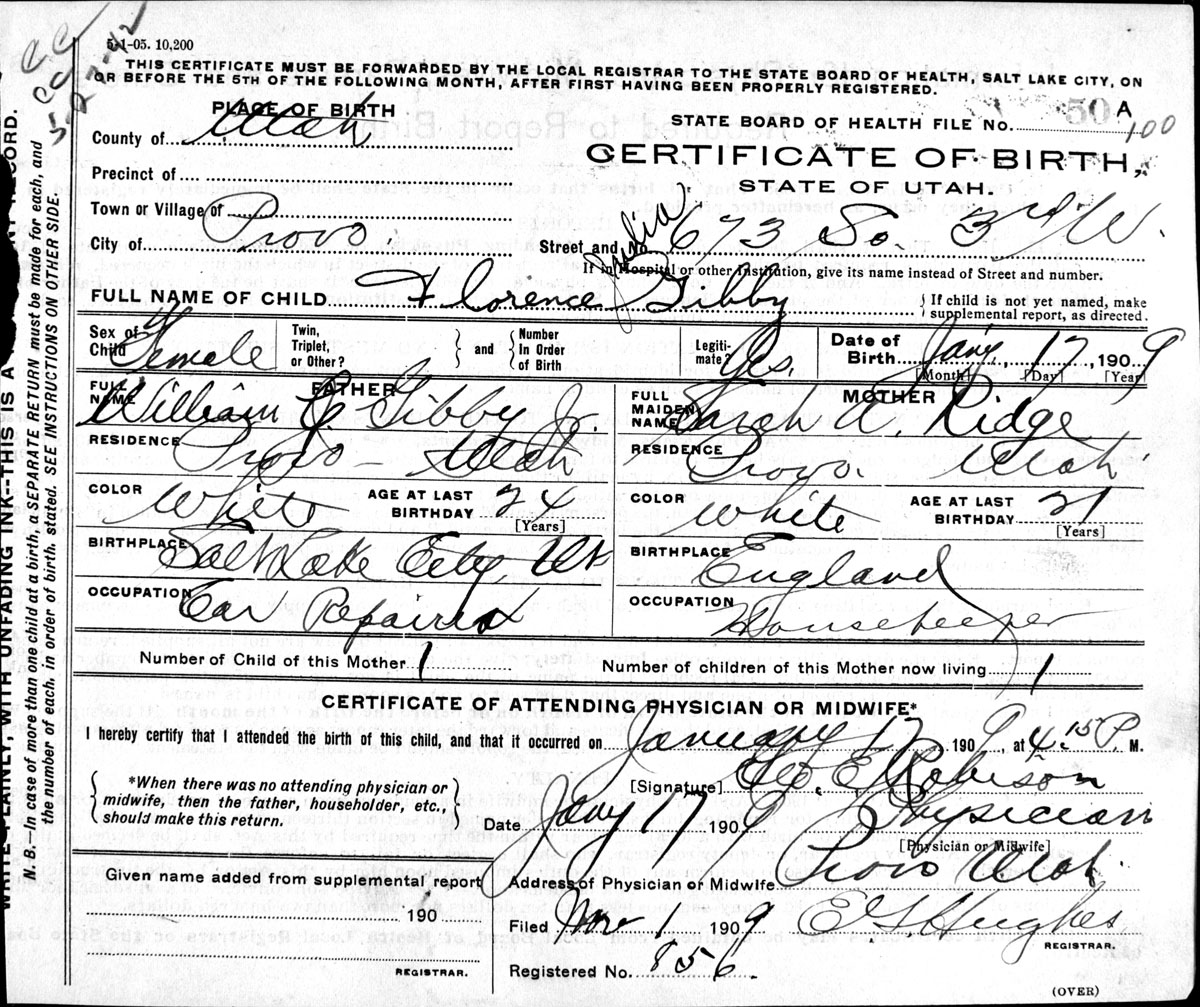 5-1-05. 10,200
CC
CC
5-27-42
THIS CERTIFICATE MUST BE FORWARDED BY THE LOCAL REGISTRAR TO THE STATE BOARD OF HEALTH, SALT LAKE CITY, ON
OR BEFORE THE 5TH OF THE FOLLOWING MONTH, AFTER FIRST HAVING BEEN PROPERLY REGISTERED.
PLACE OF BIRTH
County of Utah
Precinct of
Town or Village of
City of Provo
50 A
STATE BOARD OF HEALTH FILE No. 100
CERTIFICATE OF BIRTH,
STATE OF UTAH.
Street and No. 673 So. 3rd W.
If in Hospital or other Institution, give its name instead of Street and number.
FULL NAME OF CHILD Florence Gibby
{ If child is not yet named, make
supplemental report, as directed.
Sex of Child Female
Twin, Triplet, or Other?
} and {
Number In Order of Birth
Legiti- mate? Yes.
Date of Birth Jany. 17 1909
[Month] [Day] [Year]
FATHER
FULL NAME William C. Gibby Jr.
RESIDENCE Provo - Utah
COLOR White AGE AT LAST BIRTHDAY 24
[Years]
BIRTHPLACE Salt Lake City, Ut
OCCUPATION Car Repairer
MOTHER
FULL MAIDEN NAME Sarah A. Ridge
RESIDENCE Provo. Utah
COLOR White AGE AT LAST BIRTHDAY 21
[Years]
BIRTHPLACE England
OCCUPATION Housekeeper
Number of Child of this Mother 1
Number of children of this Mother now living 1
CERTIFICATE OF ATTENDING PHYSICIAN OR MIDWIFE*
I hereby certify that I attended the birth of this child, and that it occurred on January 17 1909, at 4.15 P. M.
{ *When there was no attending physician or
midwife, then the father, householder, etc.,
should make this return. }
[Signature] Geo. E. Robison
Date Jany 17 1909 Physician
[Physician or Midwife]
Given name added from supplemental report
190
REGISTRAR.
Address of Physician or Midwife Provo Utah.
Filed 1 1909 Hughes
REGISTRAR.
Registered No. 856.
(OVER)
WRITE PLAINLY, WITH UNFADING INK--THIS IS A RECORD.
N. B.--In case of more than one child at a birth, a SEPARATE RETURN must be made for each, and
the number of each, in order of birth, stated. SEE INSTRUCTIONS ON OTHER SIDE.